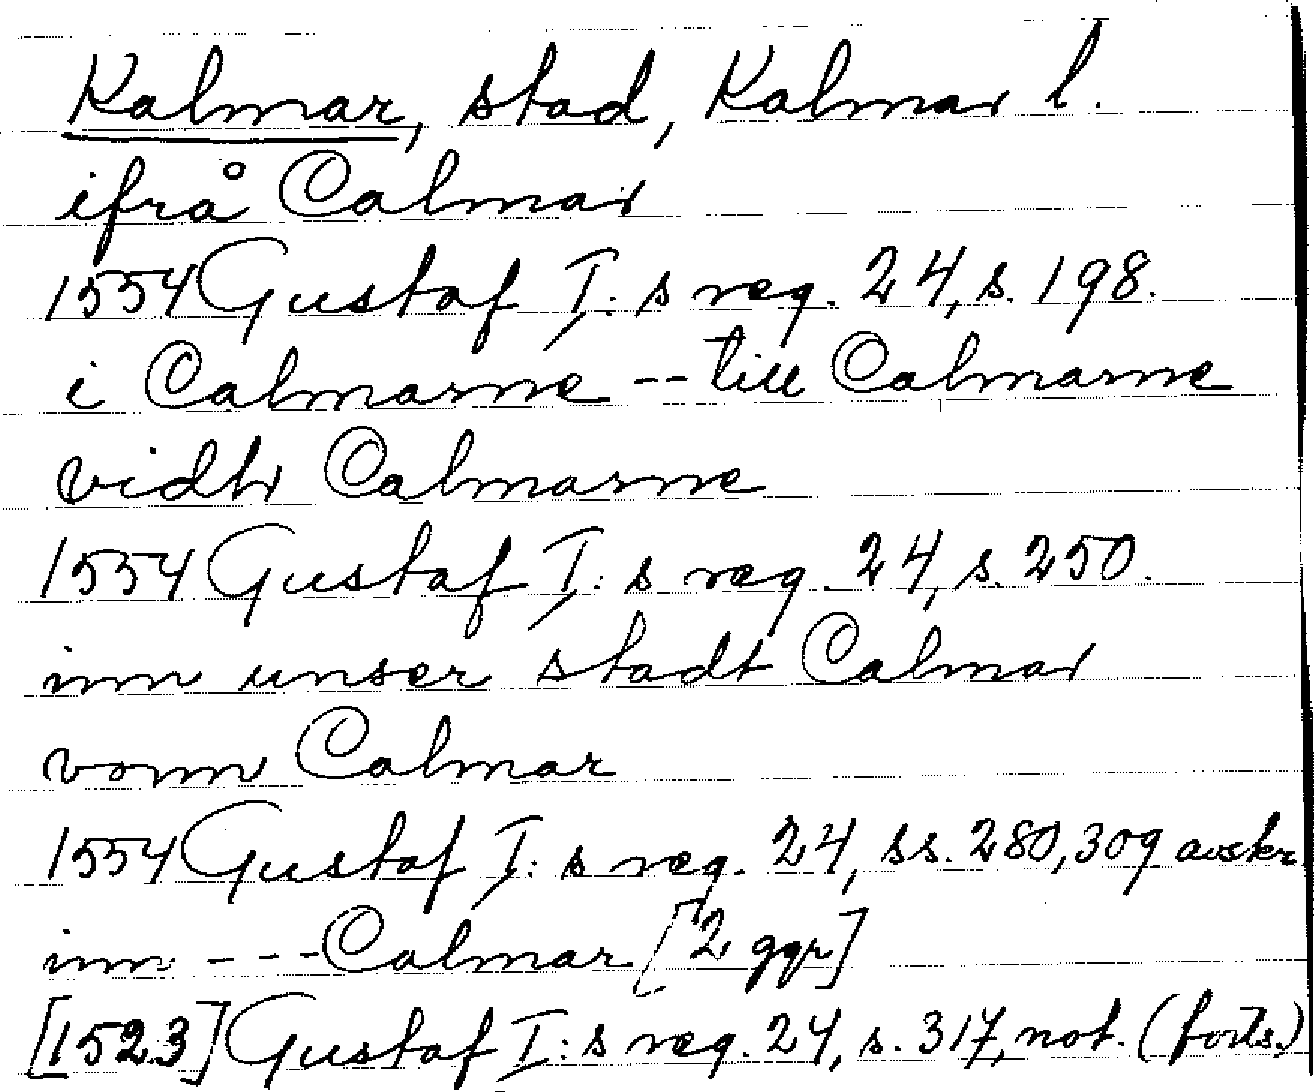 Kalmar, stad, Kalmar l.
ifrå Calmar
1554 Gustaf I:s reg. 24, s. 198.
i Calmarne -- till Calmarne
vidh Calmarne
1554 Gustaf I:s reg. 24, s. 250.
inn unser stadt Calmar
vonn Calmar
1554 Gustaf I:s reg. 24, ss. 280, 309 avskr.
inn - - - Calmar [2 ggr]
[1523] Gustaf I:s reg. 24, s. 317, not. (forts.)